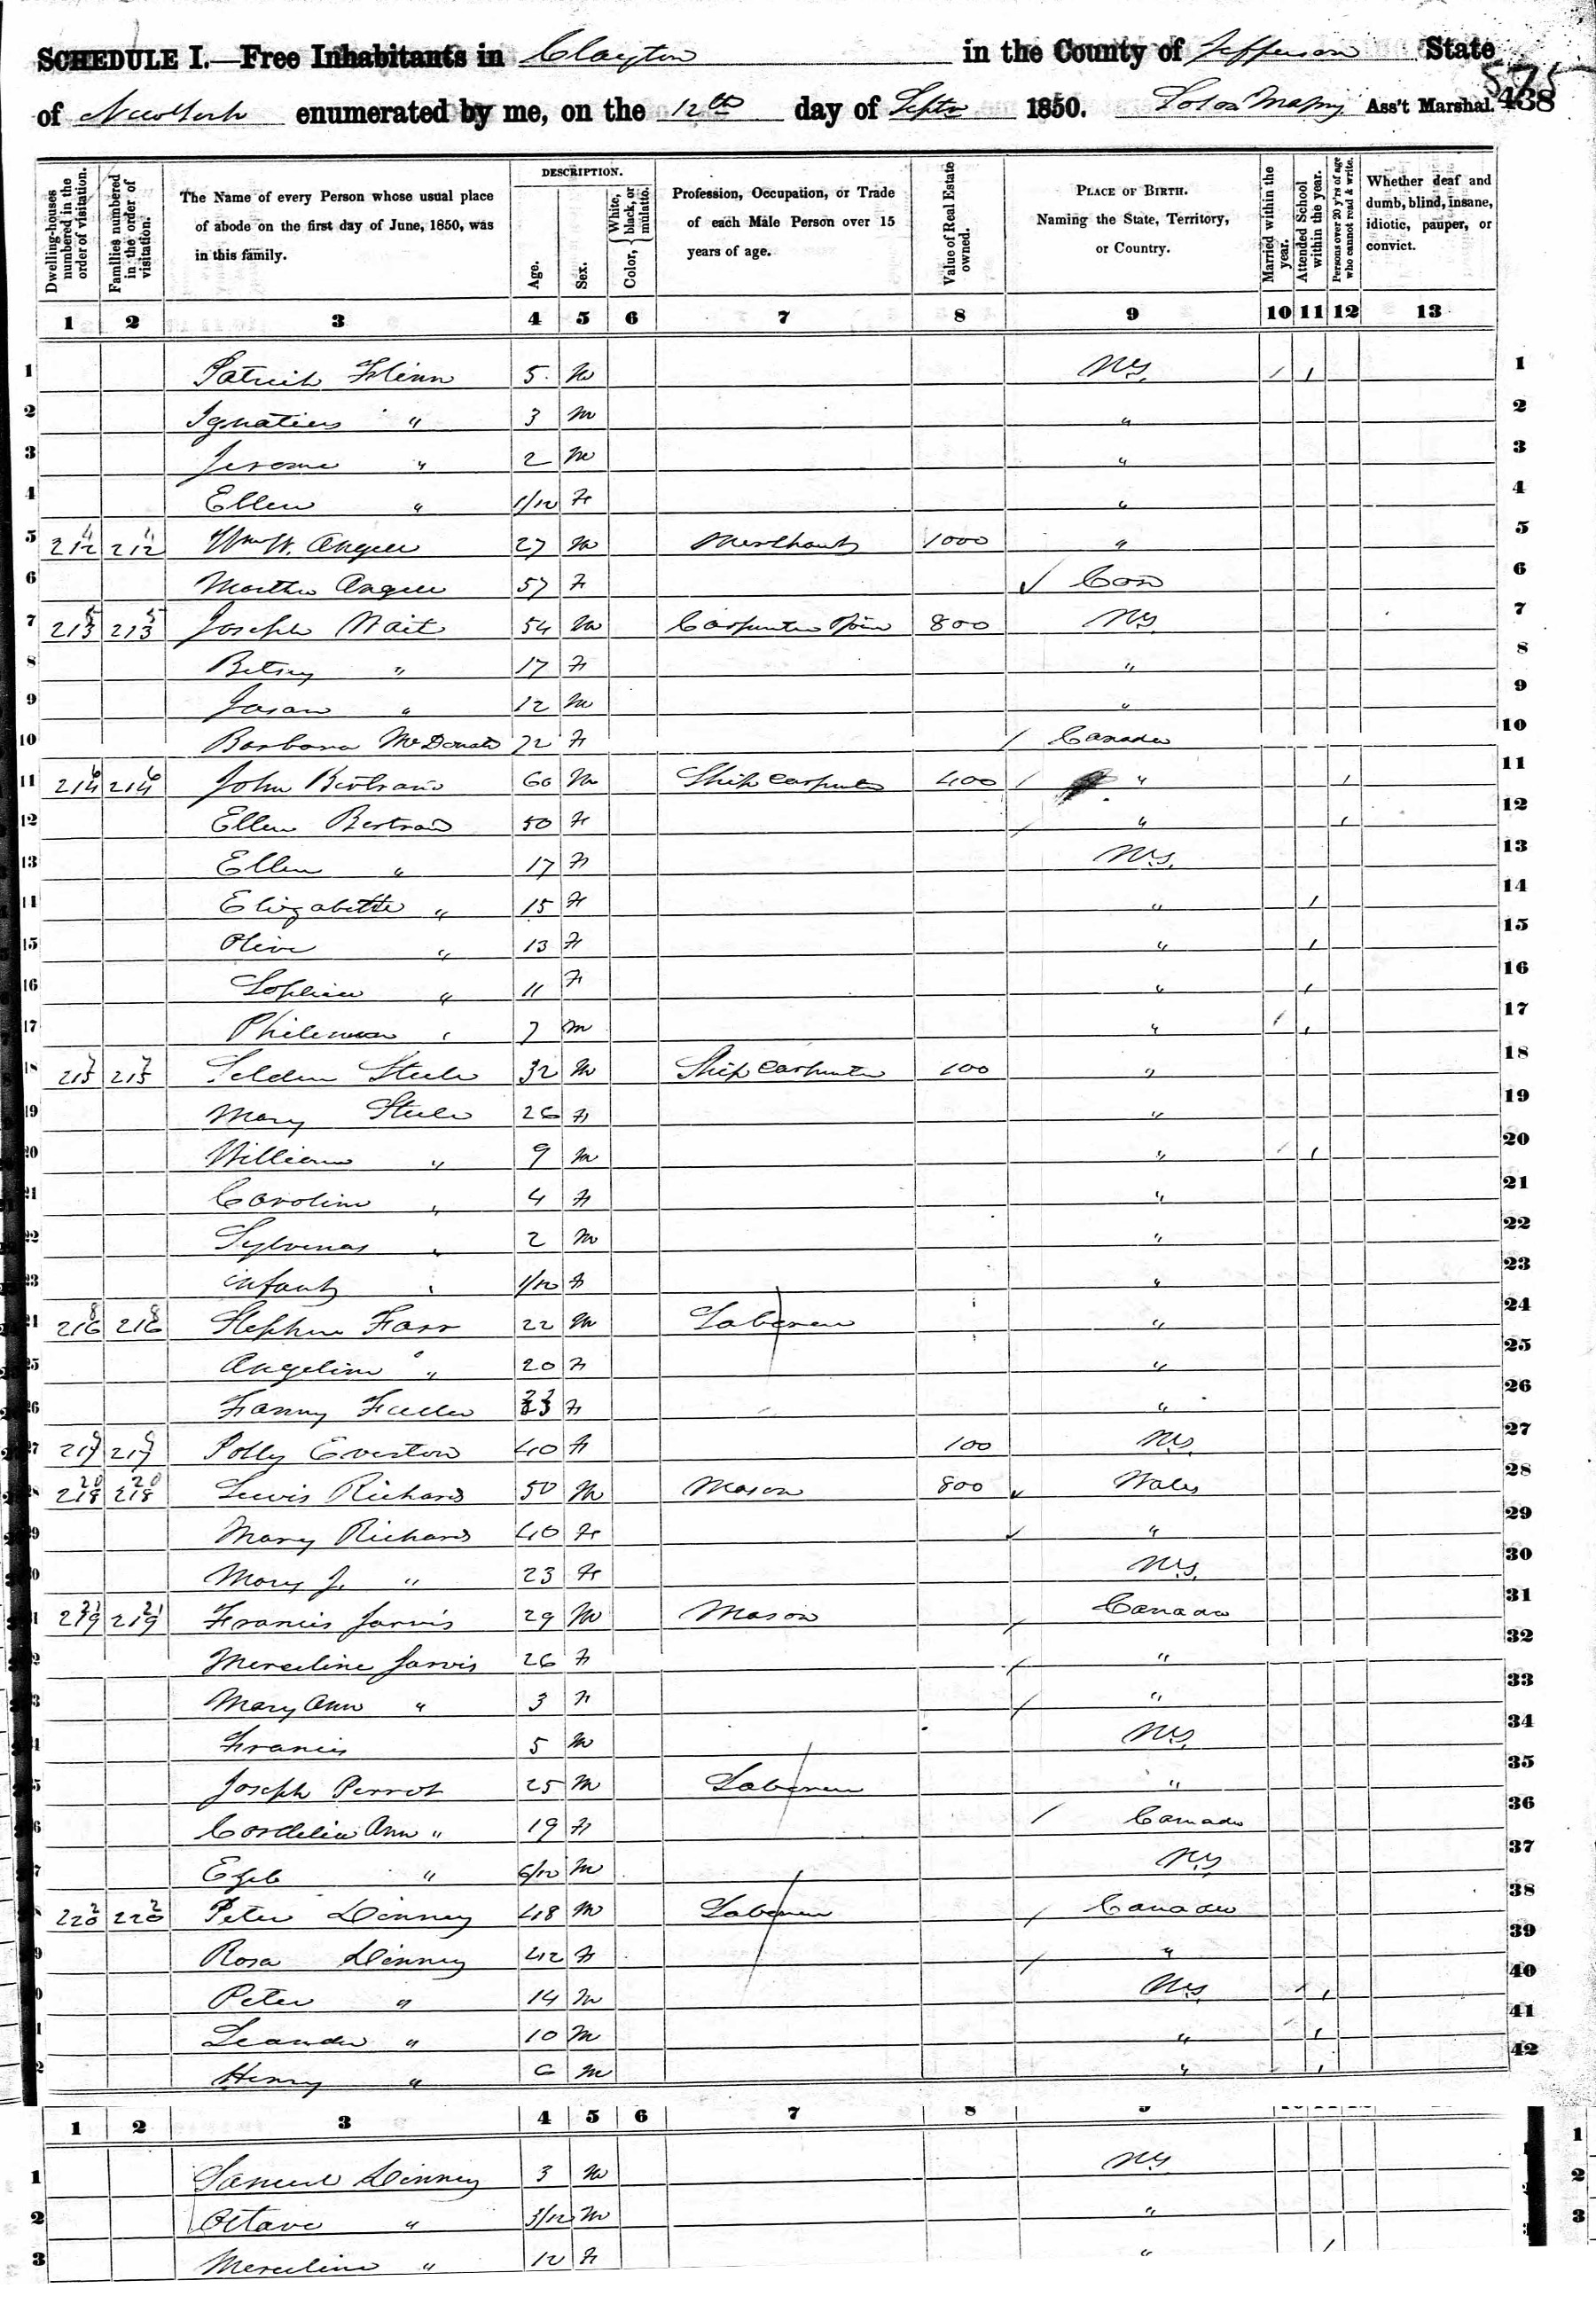 SCHEDULE I.—Free Inhabitants in Clayton in the County of Jefferson State
of New York enumerated by me, on the 12th day of Septr 1850. Ass't Marshal. 438
575
Dwelling-houses numbered in the order of visitation.
Families numbered in the order of visitation.
The Name of every Person whose usual place of abode on the first day of June, 1850, was in this family.
DESCRIPTION.
Age.
Sex.
Color, { White, black, or mulatto.
Profession, Occupation, or Trade of each Male Person over 15 years of age.
Value of Real Estate owned.
PLACE OF BIRTH. Naming the State, Territory, or Country.
Married within the year.
Attended School within the year.
Persons over 20 y'rs of age who cannot read & write.
Whether deaf and dumb, blind, insane, idiotic, pauper, or convict.
1 2 3 4 5 6 7 8 9 10 11 12 13
1 Patrick Flinn 5 M N.Y. / / 1
2 Ignatius " 3 M " 2
3 Jerome " 2 M " 3
4 Ellen " 1/12 F " 4
5 212 4 212 4 Wm W. Angell 27 M Merchant 1000 " 5
6 Martha Angell 57 F ✓ Con 6
7 213 5 213 5 Joseph Wait 54 M Carpenter 800 N.Y. 7
8 Betsey " 17 F " 8
9 Jason " 12 M " 9
10 Barbara McDonald 72 F / Canada 10
11 214 6 214 6 John Bertrand 60 M Ship Carpenter 400 / " / 11
12 Ellen Bertrand 50 F / " / 12
13 Ellen " 17 F N.Y. 13
14 Elizabette " 15 F " / 14
15 Olive " 13 F " / 15
16 Sophia " 11 F " / 16
17 Philemon " 7 M " / / 17
18 215 7 215 7 Selden Steele 32 M Ship Carpenter 100 " 18
19 Mary Steele 26 F " 19
20 William " 9 M " / / 20
21 Caroline " 4 F " 21
22 Sylvenas " 2 M " 22
23 infant " 1/12 F " 23
24 216 8 216 8 Stephen Farr 22 M Laborer " 24
25 Angeline " 20 F " 25
26 Fanny Fuller F " 26
27 217 9 217 9 Polly Everton 40 F 100 N.Y. 27
28 218 20 218 20 Lewis Richard 50 M Mason 800 ✓ Wales 28
29 Mary Richard 40 F ✓ " 29
30 Mary J. " 23 F N.Y. 30
31 219 21 219 21 Francis Jarvis 29 M Mason / Canada 31
32 Merceline Jarvis 26 F / " 32
33 Mary Ann " 3 F / " 33
34 Francis 5 M N.Y. 34
35 Joseph Perrot 25 M Laborer " 35
36 Cordelia Ann " 19 F / Canada 36
37 " 6/12 M N.Y. 37
38 220 2 220 2 Peter Dinney 48 M Laborer / Canada 38
39 Rosa Dinney 42 F / " 39
40 Peter " 14 M N.Y. / / 40
41 Leander " 10 M " / / 41
42 Henry " 6 M " / / 42
1 2 3 4 5 6 7 8 9
1 Samuel Dinney 3 M N.Y. 1
2 Octave " 3/12 M " 2
3 Merceline " 12 F " / 3